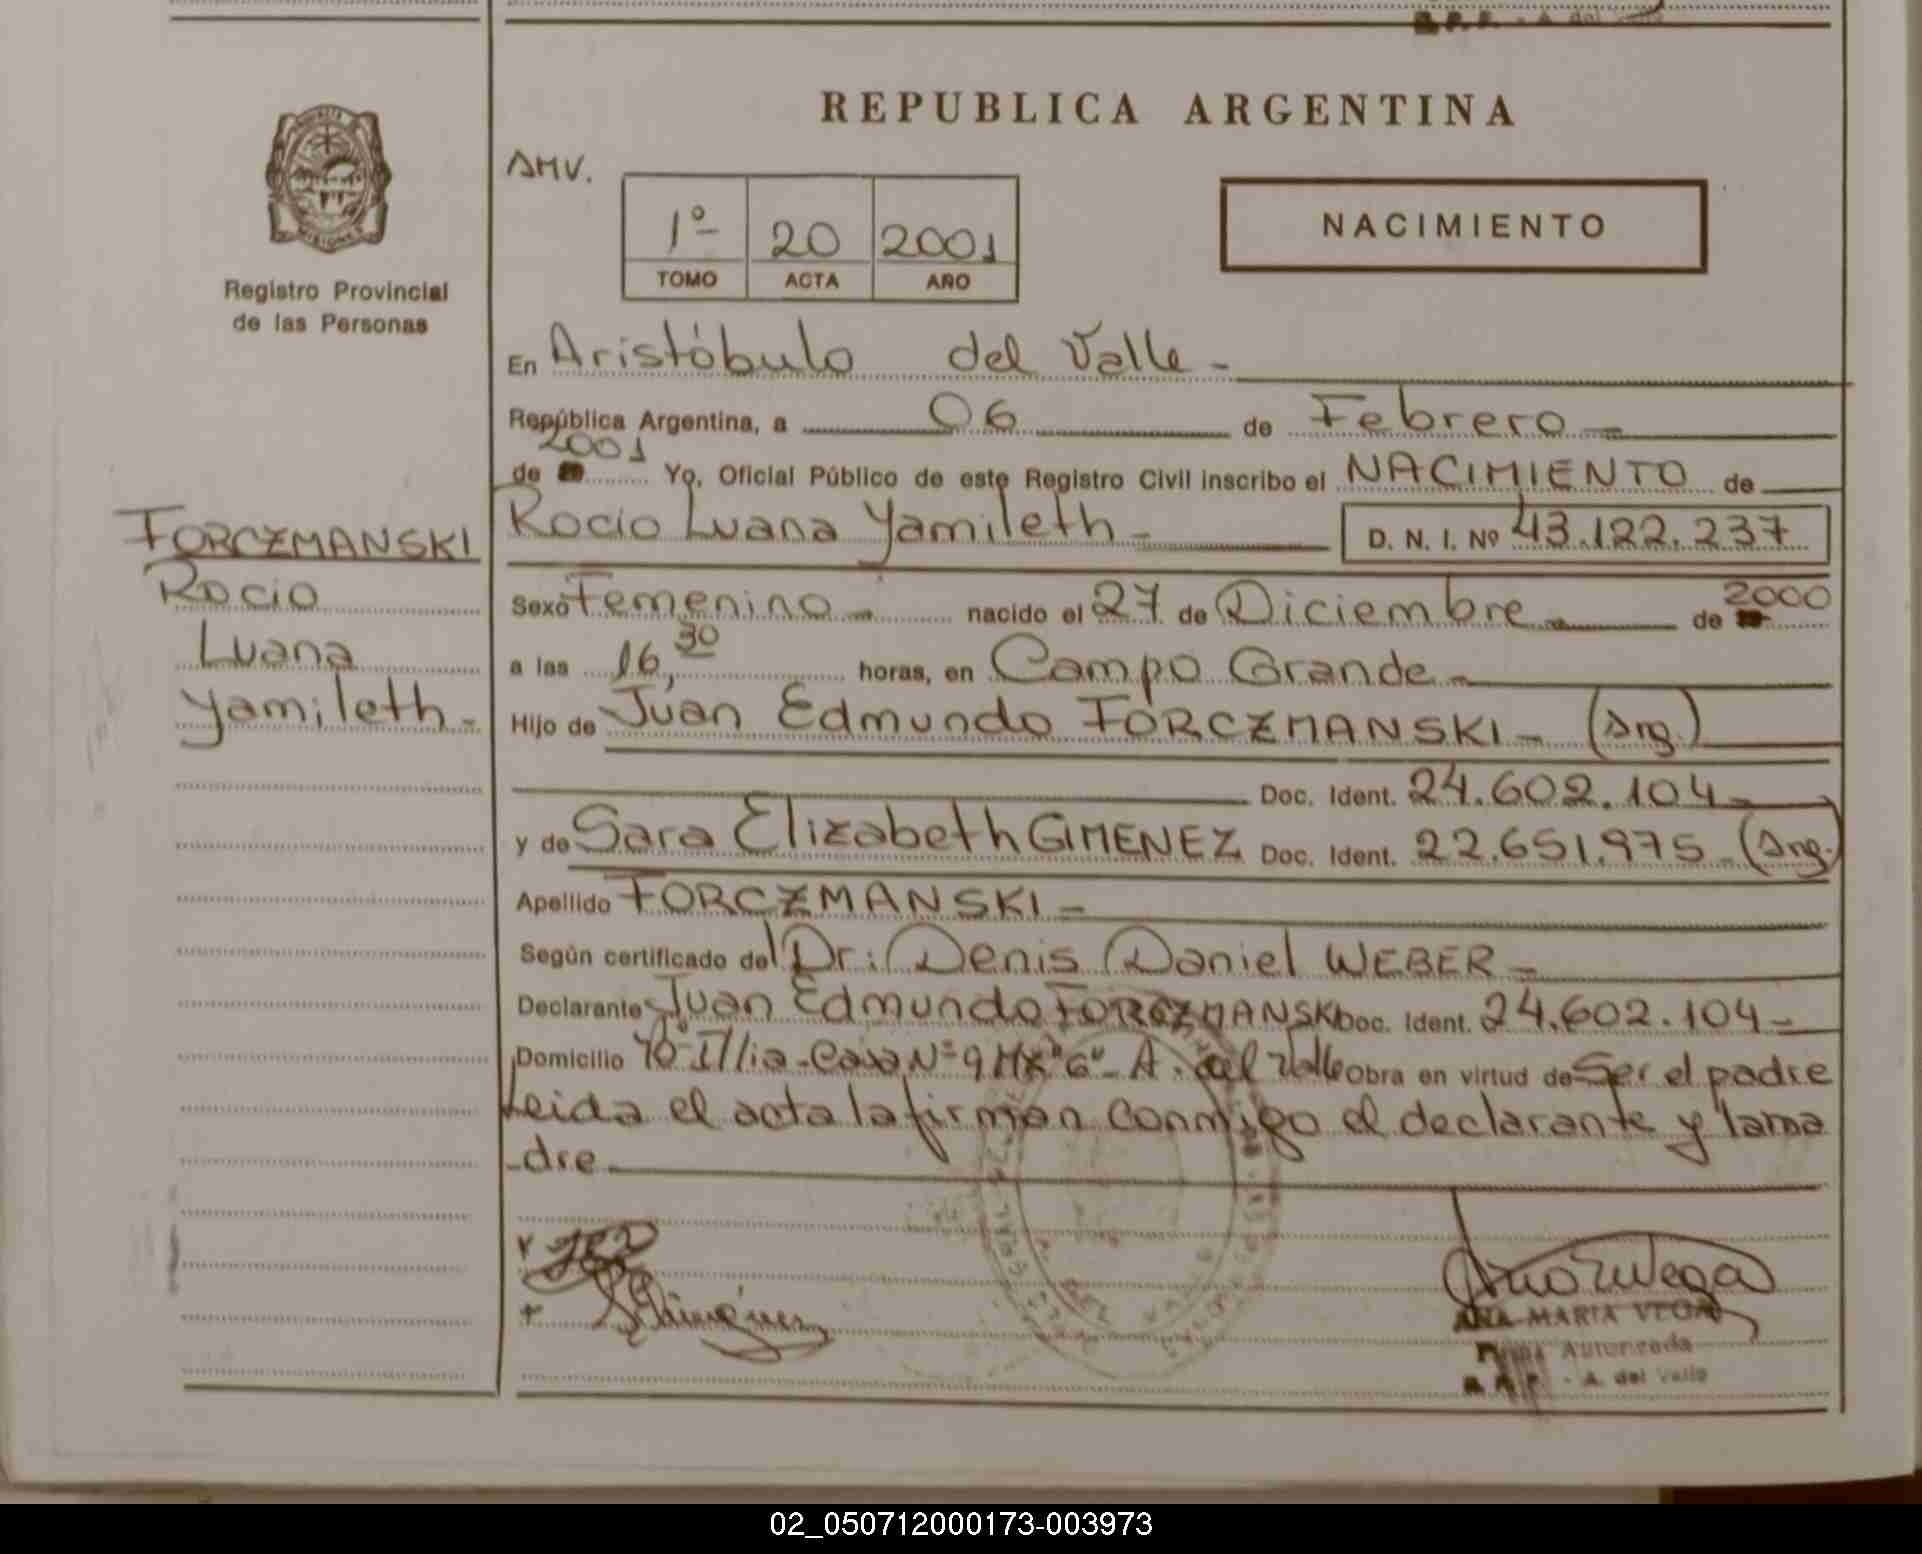 REPUBLICA ARGENTINA
AMV.
1º 20 2001
TOMO ACTA AÑO
NACIMIENTO
MISIONES
Registro Provincial
de las Personas
En Aristóbulo del Valle -
República Argentina, a 06 de Febrero -
de 2001 Yo, Oficial Público de este Registro Civil inscribo el NACIMIENTO de
Rocio Luana Yamileth - D. N. I. Nº 43.122.237
FORCZMANSKI
Rocio
Luana
Yamileth -
Sexo Femenino - nacido el 27 de Diciembre - de 2000
a las 16,30 horas, en Campo Grande -
Hijo de Juan Edmundo FORCZMANSKI - (Arg.)
Doc. Ident. 24.602.104 -
y de Sara Elizabeth GIMENEZ Doc. Ident. 22.651.975 - (Arg.)
Apellido FORCZMANSKI -
Según certificado del Dr: Denis Daniel WEBER -
Declarante Juan Edmundo FORCZMANSKI Doc. Ident. 24.602.104 -
Domicilio Bº Illia - Casa Nº 9 Mz "G" - A. del Valle Obra en virtud de Ser el padre
Leida el acta la firman conmigo el declarante y la ma
-dre
ANA MARIA VEGA
Autorizada
- A. del Valle
02_050712000173-003973